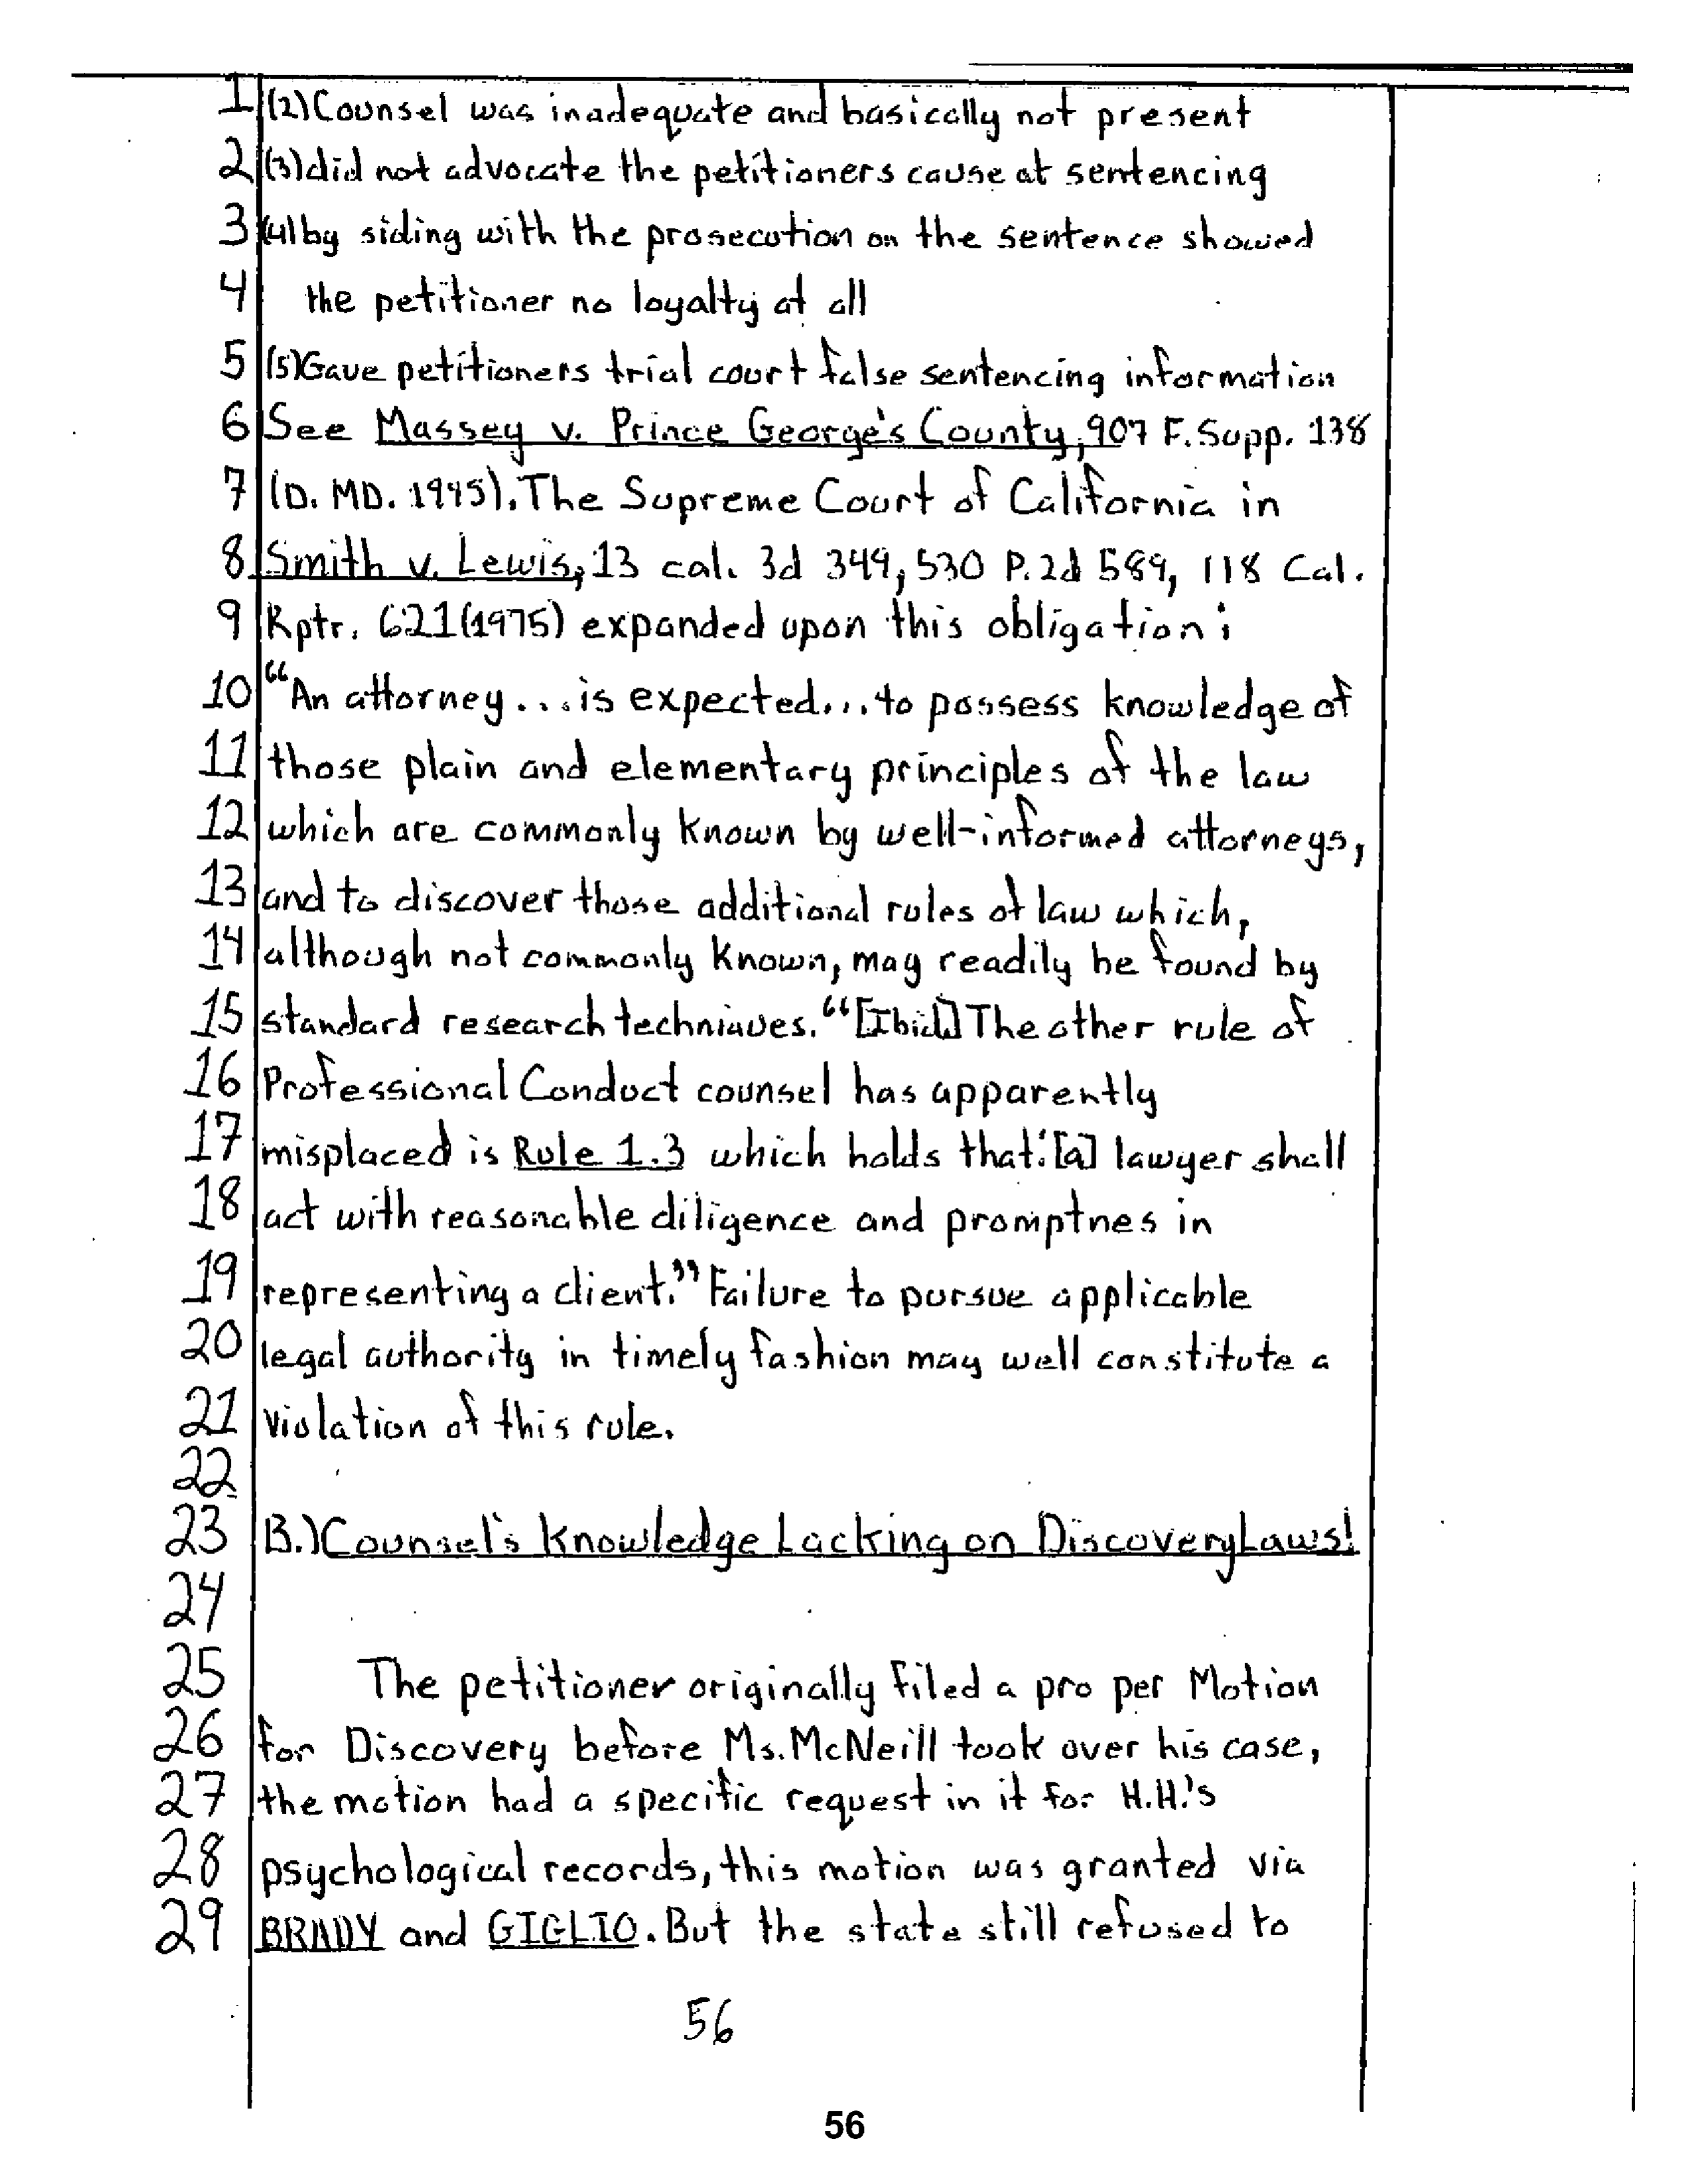 1 (2) Counsel was inadequate and basically not present
2 (3) did not advocate the petitioners cause at sentencing
3 (4) by siding with the prosecution on the sentence showed
4 the petitioner no loyalty at all
5 (5) Gave petitioners trial court false sentencing information
6 See Massey v. Prince George's County, 907 F. Supp. 138
7 (D. MD. 1995). The Supreme Court of California in
8 Smith v. Lewis, 13 cal. 3d 349, 530 P. 2d 589, 118 Cal.
9 Rptr. 621 (1975) expanded upon this obligation:
10 "An attorney...is expected...to possess knowledge of
11 those plain and elementary principles of the law
12 which are commonly known by well-informed attorneys,
13 and to discover those additional rules of law which,
14 although not commonly known, may readily be found by
15 standard research techniques. "[Ibid.] The other rule of
16 Professional Conduct counsel has apparently
17 misplaced is Rule 1.3 which holds that: "[a] lawyer shall
18 act with reasonable diligence and promptnes in
19 representing a client." Failure to pursue applicable
20 legal authority in timely fashion may well constitute a
21 violation of this rule.
22
23 B.) Counsel's Knowledge Lacking on Discovery Laws!
24
25 The petitioner originally filed a pro per Motion
26 for Discovery before Ms. McNeill took over his case,
27 the motion had a specific request in it for H.H.'s
28 psychological records, this motion was granted via
29 BRADY and GIGLIO. But the state still refused to
56
56